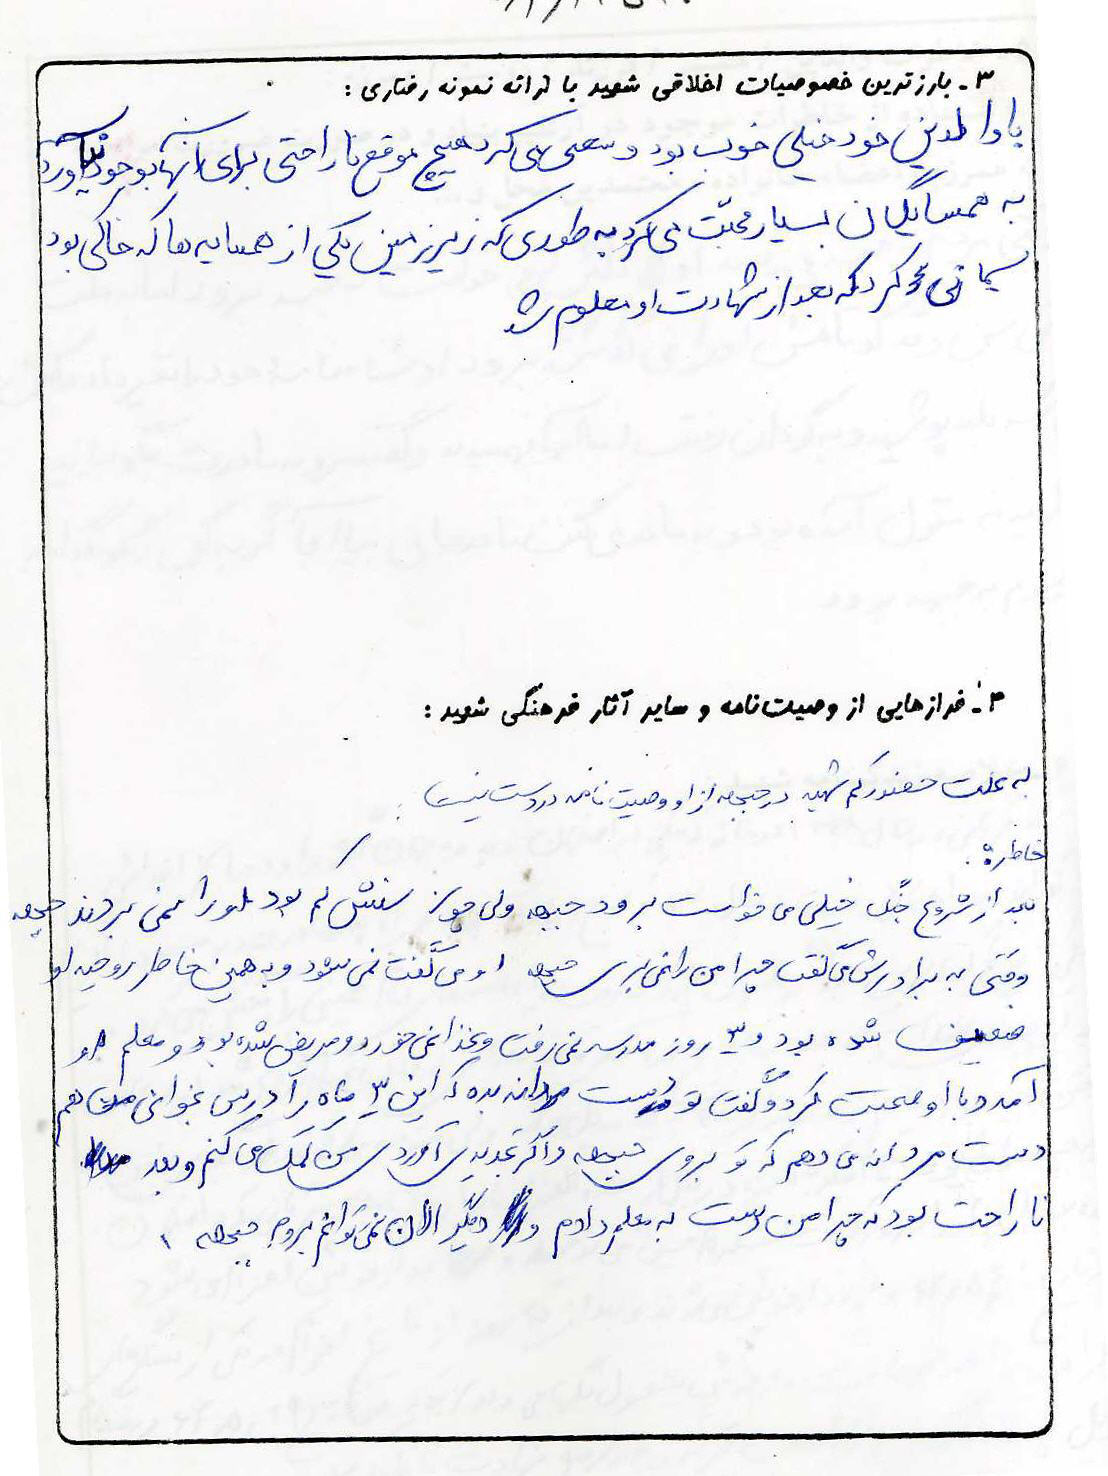 ۳ـ بارزترین خصوصیات اخلاقی شهید با ارائه نمونه رفتاری :
با والدین خود خیلی خوب بود و سعی می کرد هیچ موقع ناراحتی برای آنها بوجود نیاورد
به همسایگان بسیار محبت می کرد به طوری که زیرزمین یکی از همسایه ها که خاکی بود
سیمانی کرد که بعد از شهادت او معلوم شد
۴ـ فرازهایی از وصیت‌نامه و سایر آثار فرهنگی شهید :
به علت حضور کم شهید در جبهه از او وصیت نامه در دست نیست
خاطره :
بعد از شروع جنگ خیلی می خواست برود جبهه ولی چون سنش کم بود او را نمی بردند جبهه
وقتی به برادرش می گفت چرا من را نمی بری جبهه او می گفت نمی شود و به همین خاطر روحیه او
ضعیف شده بود و ۳ روز مدرسه نمی رفت و غذا نمی خورد و مریض شده بود و معلم او
آمد و با او صحبت کرد و گفت تو دست مردانه بده که این ۳ ماه را درس بخوانی من هم
دست مردانه می دهم که تو بروی جبهه و اگر تجدیدی آوردی من کمک می کنم و بعد
ناراحت بود که چرا من دست به معلم دادم و دیگر الان نمی توانم بروم جبهه .